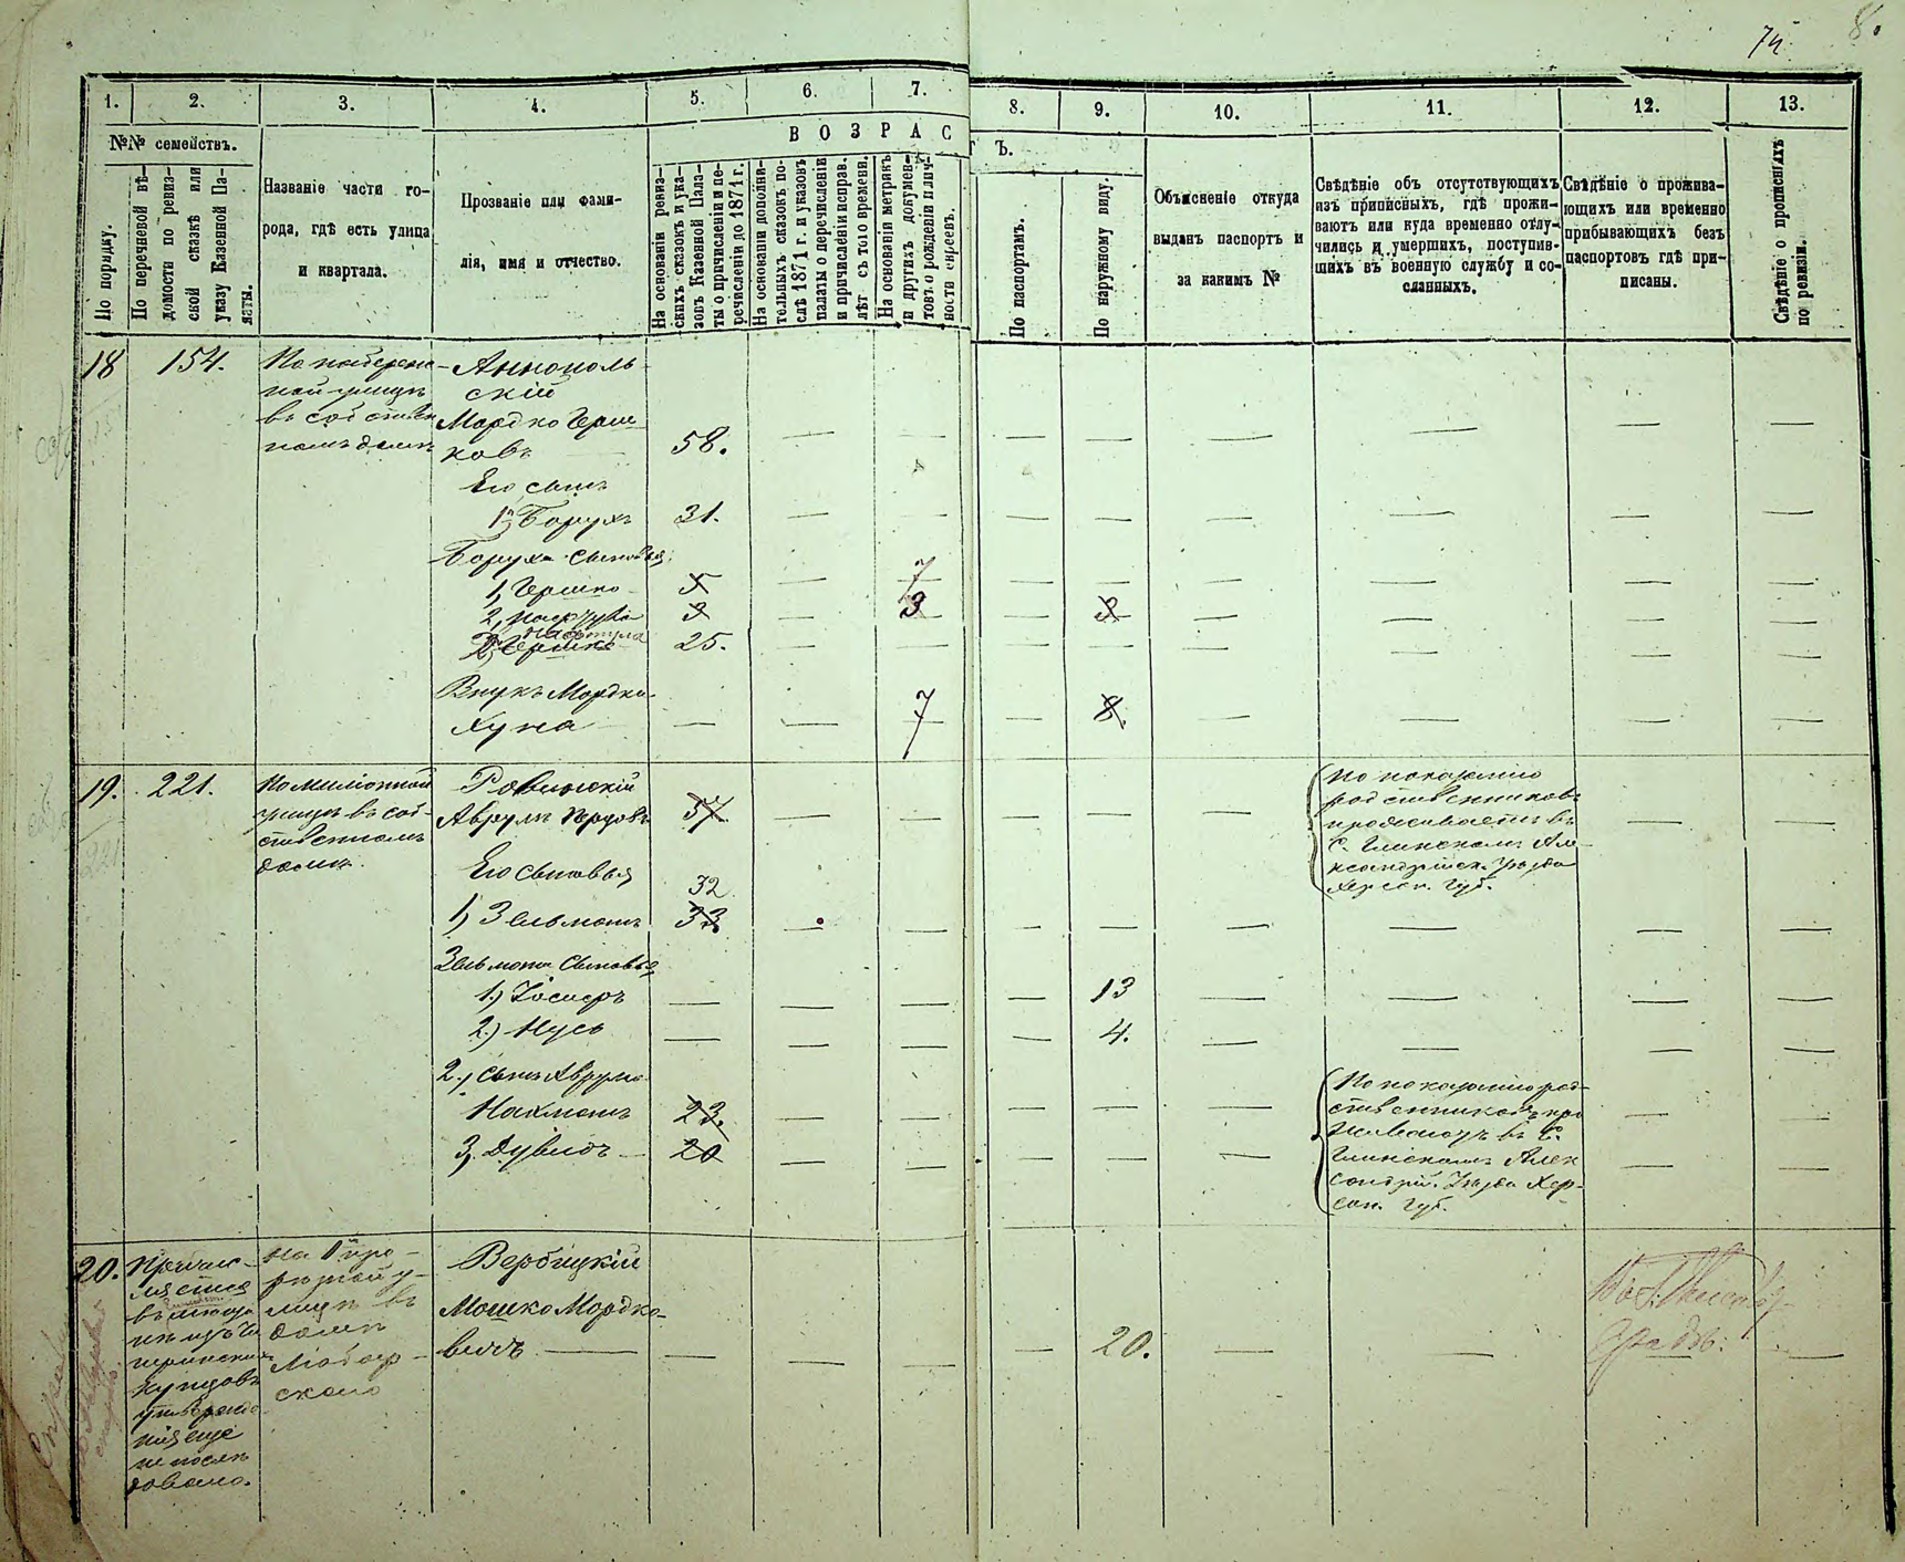 74
8.
1. 2. 3. 4. 5. 6. 7. 8. 9. 10. 11. 12. 13.
№№ семействъ.
По порядку.
По перечневой вѣ-
домости по ревиз-
ской сказкѣ или
указу Казенной Па-
латы.
Названіе части го-
рода, гдѣ есть улица
и квартала.
Прозваніе или фами-
лія, имя и отчество.
ВОЗРАСТЪ.
На основаніи ревиз-
скихъ сказокъ и ука-
зовъ Казенной Пала-
ты о причисленіи и пе-
речисленіи до 1871 г.
На основаніи дополни-
тельныхъ сказокъ по-
слѣ 1871 г. и указовъ
палаты о перечисленіи
и причисленіи исправ.
лѣт съ того времени.
На основаніи метрикъ
и другихъ докумен-
товъ о рожденіи и лич-
ности евреевъ.
По паспортамъ.
По наружному виду.
Объясненіе откуда
выданъ паспортъ и
за какимъ №
Свѣдѣніе объ отсутствующихъ
изъ приписныхъ, гдѣ прожи-
ваютъ или куда временно отлу-
чились и умершихъ, поступив-
шихъ въ военную службу и со-
сланныхъ.
Свѣдѣніе о прожива-
ющихъ или временно
прибывающихъ безъ
паспортовъ гдѣ при-
писаны.
Свѣдѣніе о прописныхъ
по ревизіи.
18 154.
По набереж-
ной улицѣ
въ собствен
номъ домѣ
Аннополь-
скій
Мордко Герш-
ковъ 58.
Его сынъ
1, Борухъ 31.
Боруха сыновья
1, Гершко 5 7
2, 3 3 3
Нафтула
2, Гершко 25.
Внукъ Мордка
Хуна 7 8.
19. 221.
По Миліонной
улицѣ въ соб-
ственномъ
домѣ.
Ровинскій
Аврумъ 57
По показанію
родственниковъ
проживаетъ въ
с. Глинскомъ Але-
ксандрійск. Уѣзда
Херсон. Губ.
Его сыновья
32
1, Зельманъ 33
Зельмана сыновья
1.) Іосиеръ 13
2.) Нусь 4.
2., сынъ Аврума
Нахманъ 23.
3, Дувидъ 20
По показанію род-
ственниковъ про
живаютъ въ С.
Глинскомъ Алек
сандрій. Уѣзда Хер-
сон. Губ.
20.
Причис-
ляется
въ мѣща
не изъ Чи
гиринскихъ
купцовъ
утвержде
нія еще
не послѣ
довало.
на
въ
домѣ
Любар-
скаго
Вербицкій
Мошко Мордко-
вичъ 20.